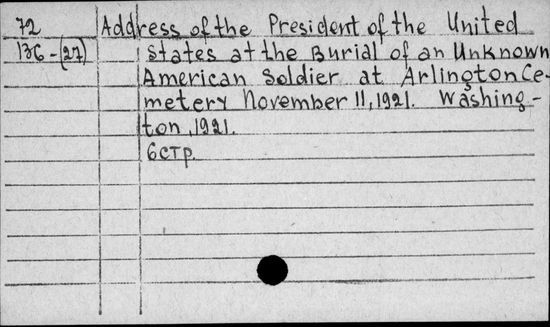 72 Address of the President of the United
136-(27) States at the Burial of an Unknown
American Soldier at Arlington Ce-
metery November 11, 1921. Washing-
ton, 1921.
6 стр.